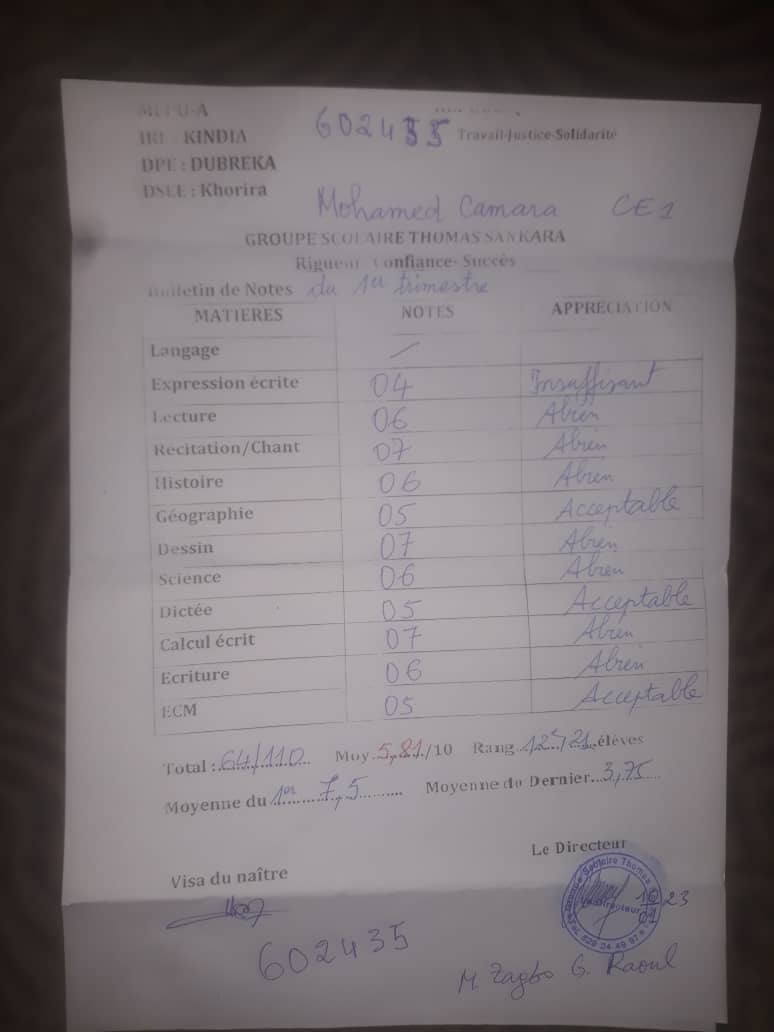 IRE : KINDIA
602435 Travail-Justice-Solidarité
DPE : DUBREKA
DSEE : Khorira
Mohamed Camara CE1
GROUPE SCOLAIRE THOMAS SANKARA
Rigueur-Confiance-Succès
Bulletin de Notes du 1er trimestre
MATIERES NOTES APPRÉCIATION
Langage /
Expression écrite 04 Insuffisant
Lecture 06 Abien
Récitation/Chant 07 Abien
Histoire 06 Abien
Géographie 05 Acceptable
Dessin 07 Abien
Science 06 Abien
Dictée 05 Acceptable
Calcul écrit 07 Abien
Ecriture 06 Abien
ECM 05 Acceptable
Total : 64/110 Moy 5,81/10 Rang 12e/21 élèves
Moyenne du 1er 7,5 Moyenne du Dernier 3,75
Le Directeur
Visa du naître
Groupe Scolaire Thomas
Le Directeur
602435
M. Zagbo G. Raoul